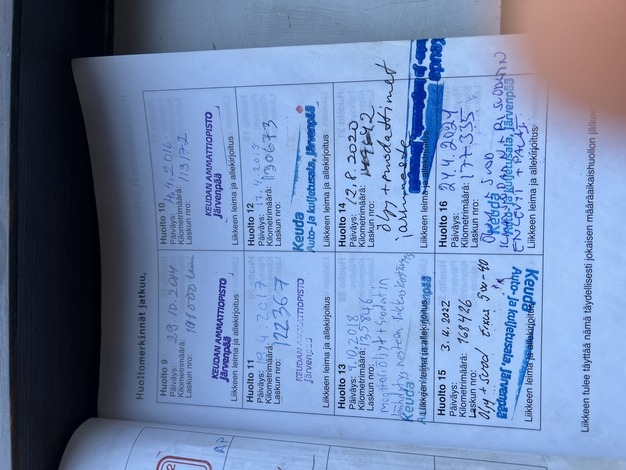 Huoltomerkinnät jatkuu,
Huolto 9
Päiväys: 29.10.2014
Kilometrimäärä: 101000 km
Laskun nro:
KEUDAN AMMATTIOPISTO
Järvenpää
Liikkeen leima ja allekirjoitus
Huolto 10
Päiväys: 4.2016
Kilometrimäärä: 113172
Laskun nro:
KEUDAN AMMATTIOPISTO
Järvenpää
Liikkeen leima ja allekirjoitus
Huolto 11
Päiväys: 4.2017
Kilometrimäärä:
Laskun nro: 122367
KEUDAN AMMATTIOPISTO
Järvenpää
Liikkeen leima ja allekirjoitus
Huolto 12
Päiväys: 17.4.2018
Kilometrimäärä: 130673
Laskun nro:
Keuda
Auto- ja kuljetusala, Järvenpää
Liikkeen leima ja allekirjoitus
Huolto 13
Päiväys: 10.2018
Kilometrimäärä: 135846
Laskun nro:
moottoriöljy + suodatin
Keuda
Liikkeen leima ja allekirjoitus
Huolto 14
Päiväys: 12.8.2020
Kilometrimäärä:
Laskun nro:
öljy + suodattimet
Liikkeen leima ja allekirjoitus
Keuda
Huolto 15
Päiväys: 3.11.2022
Kilometrimäärä: 168426
Laskun nro:
Öljy + suod 5w-40
Keuda
Auto- ja kuljetusala, Järvenpää
Liikkeen leima ja allekirjoitus
Huolto 16
Päiväys: 24.4.2024
Kilometrimäärä: 177335
Laskun nro:
Keuda
Auto- ja kuljetusala, Järvenpää
Liikkeen leima ja allekirjoitus
Liikkeen tulee täyttää nämä täydellisesti jokaisen määräaikaishuollon